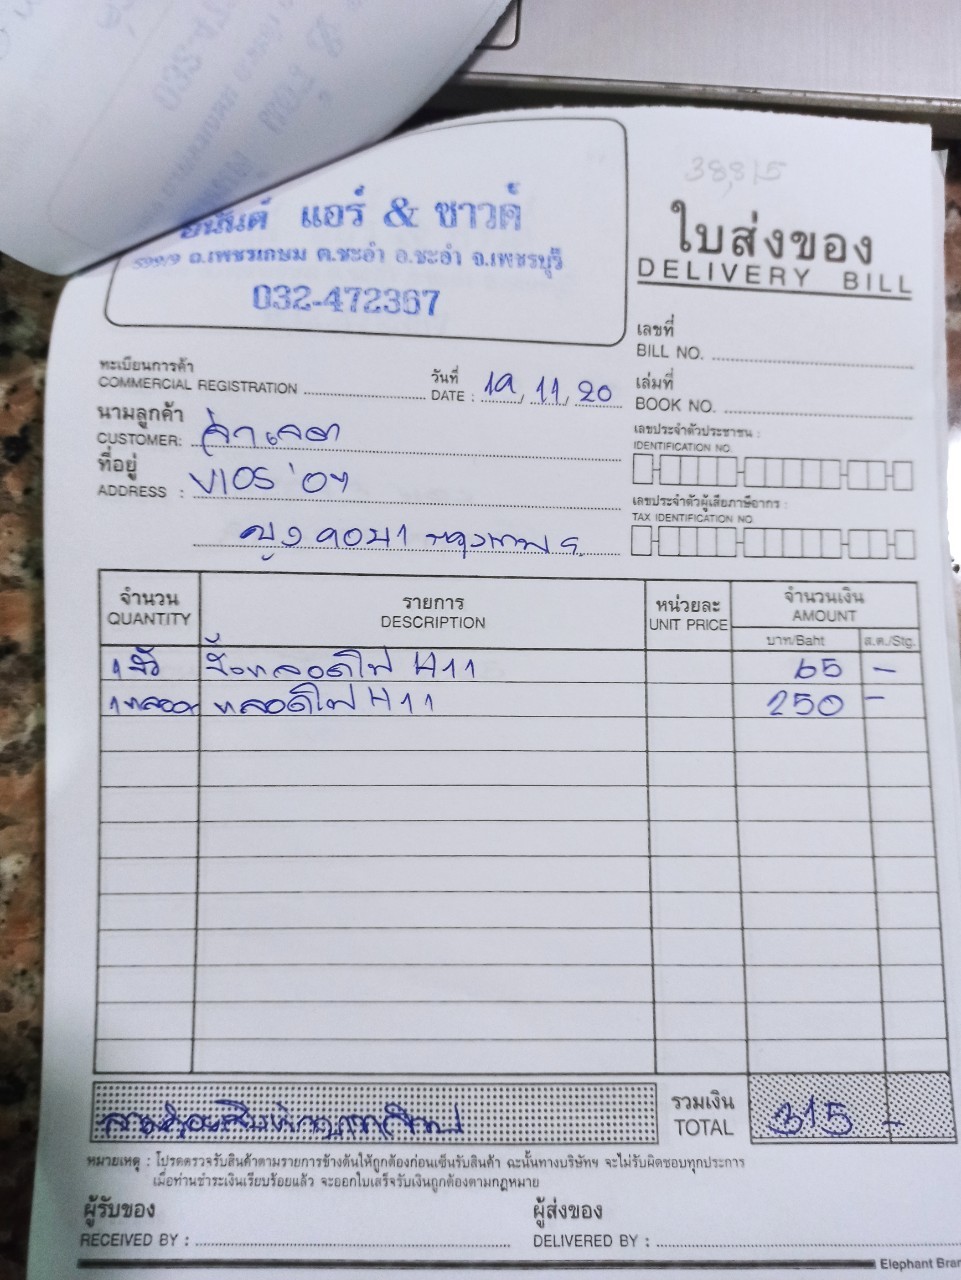 38,815
อนันต์ แอร์ & ซาวด์
599/9 ถ.เพชรเกษม ต.ชะอำ อ.ชะอำ จ.เพชรบุรี
032-472367
ใบส่งของ
DELIVERY BILL
เลขที่
BILL NO.
ทะเบียนการค้า
COMMERCIAL REGISTRATION
วันที่
DATE : 19, 11, 20
เล่มที่
BOOK NO.
นามลูกค้า
CUSTOMER:
เลขประจำตัวประชาชน :
IDENTIFICATION NO.
ที่อยู่
ADDRESS : VIOS '07
เลขประจำตัวผู้เสียภาษีอากร :
TAX IDENTIFICATION NO.
กรุงเทพฯ
จำนวน รายการ หน่วยละ จำนวนเงิน
QUANTITY DESCRIPTION UNIT PRICE AMOUNT
บาท/Baht ส.ต./Stg.
1 ขั้ว ขั้วหลอดไฟ H11 65 -
1 หลอด หลอดไฟ H11 250 -
รวมเงิน
TOTAL 315 -
หมายเหตุ : โปรดตรวจรับสินค้าตามรายการข้างต้นให้ถูกต้องก่อนเซ็นรับสินค้า ฉะนั้นทางบริษัทฯ จะไม่รับผิดชอบทุกประการ
เมื่อท่านชำระเงินเรียบร้อยแล้ว จะออกใบเสร็จรับเงินถูกต้องตามกฎหมาย
ผู้รับของ
RECEIVED BY :
ผู้ส่งของ
DELIVERED BY :
Elephant Bran